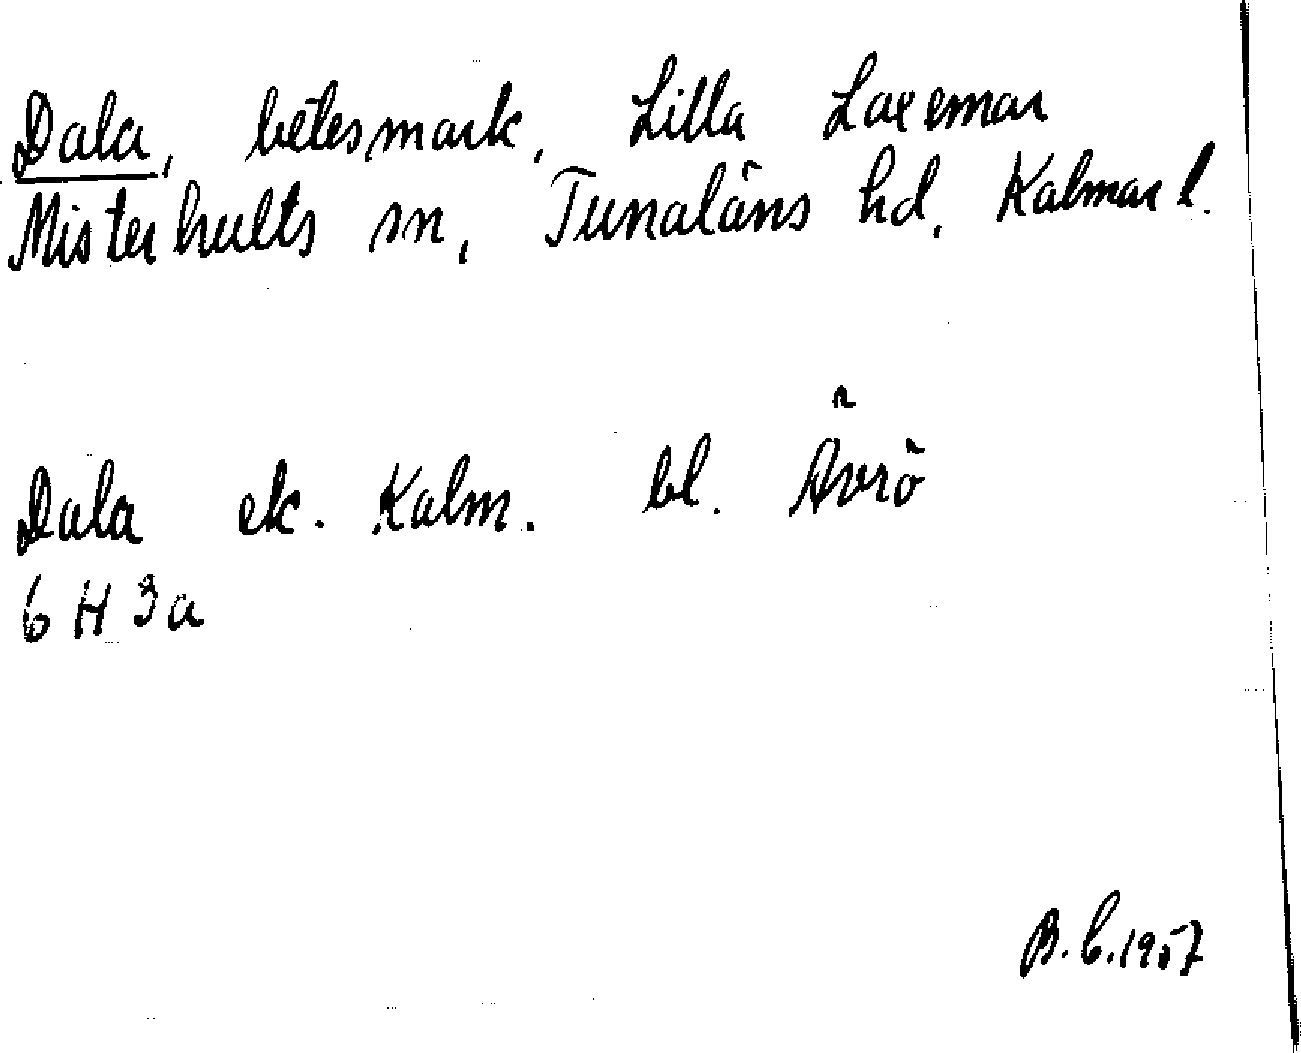 Dala, betesmark, Lilla Laxemar
Misterhults sn, Tunaläns hd, Kalmar l.
Dala ek. Kalm. bl. Ävrö
6 H 3a
B.C.1957